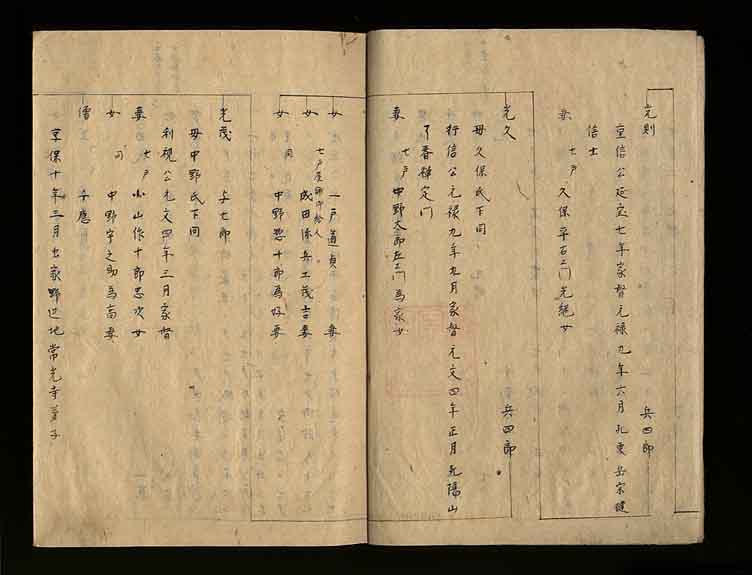 光則 兵四郎
重信公延宝七年家督元禄九年六月死東岳宗健
信士
妻 七戸 久保平右エ門光純女
光久 兵四郎
母久保氏下同
行信公元禄九年九月家督元文四年正月死陽山
了春禅定門
妻 七戸 中野太郎左エ門為家女
女 一戸道貞妻
七戸及御給人
女 成田係兵エ茂吉妻
女 同 中野惣十郎為好妻
光茂 与七郎
母中野氏下同
利視公元文四年三月家督
妻 七戸 小山作十郎忠次女
女 同 中野宇之助為高妻
僧
享保十年三月出家野辺地常光寺弟子